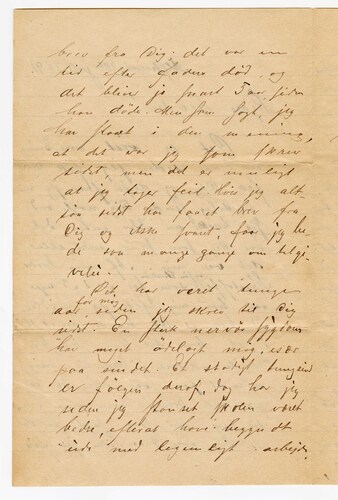 brev fra Dig; det var en
tid efter faders død og
det bliver jo snart 5 aar siden
han døde. Men som sagt, jeg
har staaet i den mening,
at det var jeg som skrev
sidst, men det er muligt
at jeg tager feil hvis jeg alt-
saa sidst har faaet brev fra
Dig og ikke svaret, faar jeg be-
de saa mange gange om tilgi-
velse.
Det har været tunge
aar for mig, siden jeg skrev til Dig
sidst. En slem nervøs sygdom
har meget ødelagt mig, især
paa sindet. Et stadigt tungsind
er følgen deraf, dog har jeg
siden jeg skolen været
bedre, efterat have begyndt
ude med legemligt arbejde.